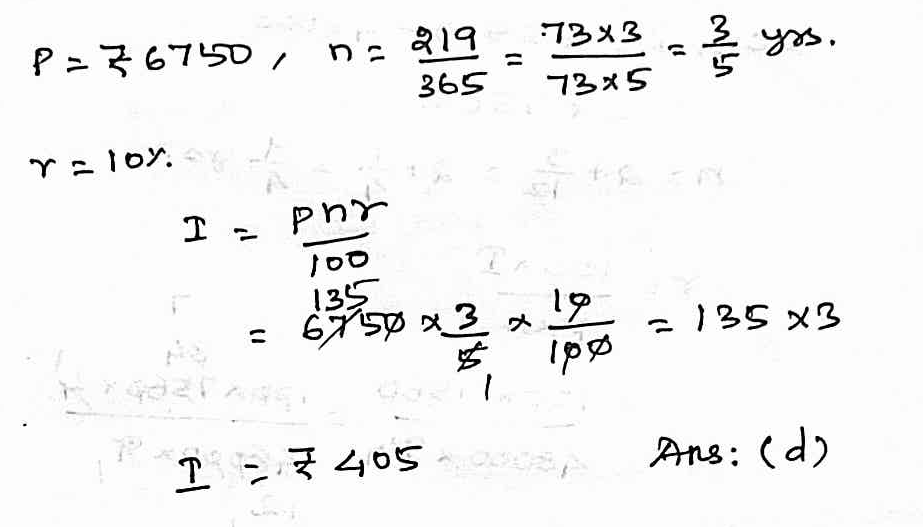 P = ₹ 6750, n = 219/365 = 73×3/73×5 = 3/5 yrs.
r = 10%.
I = Pnr/100
135
= 6750 × 3/5 × 10/100 = 135 ×3
1
I = ₹ 405 Ans: (d)